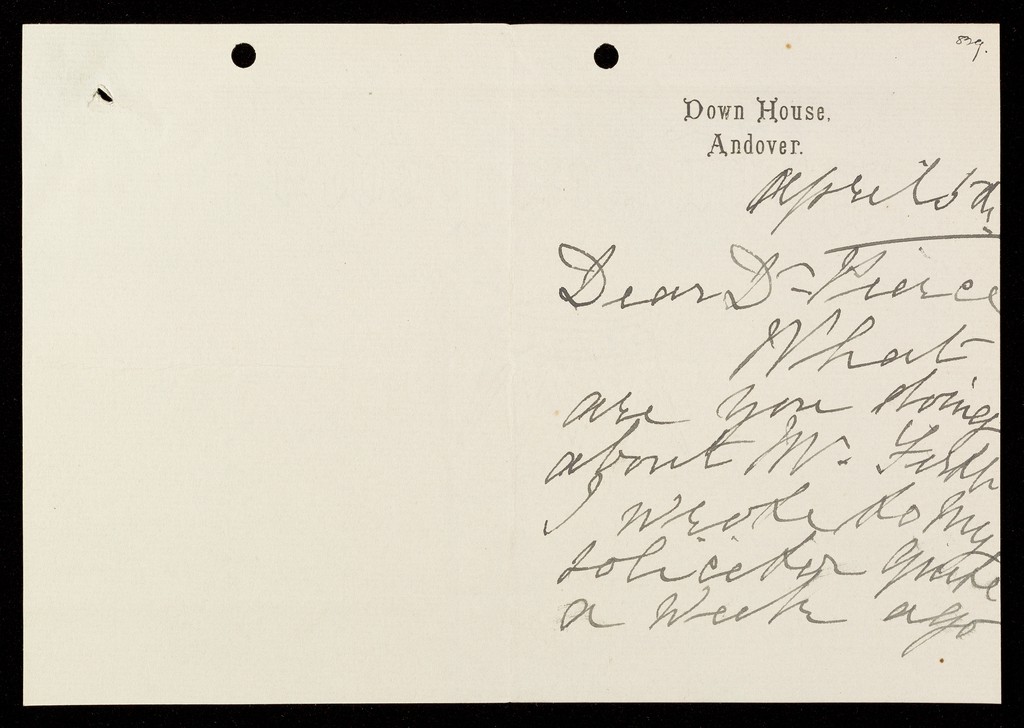 829.
Down House,
Andover.
April 5th
Dear Dr. Pierce
What
are you doing
about Mr. Firth
I wrote to my
solicitor quite
a week ago